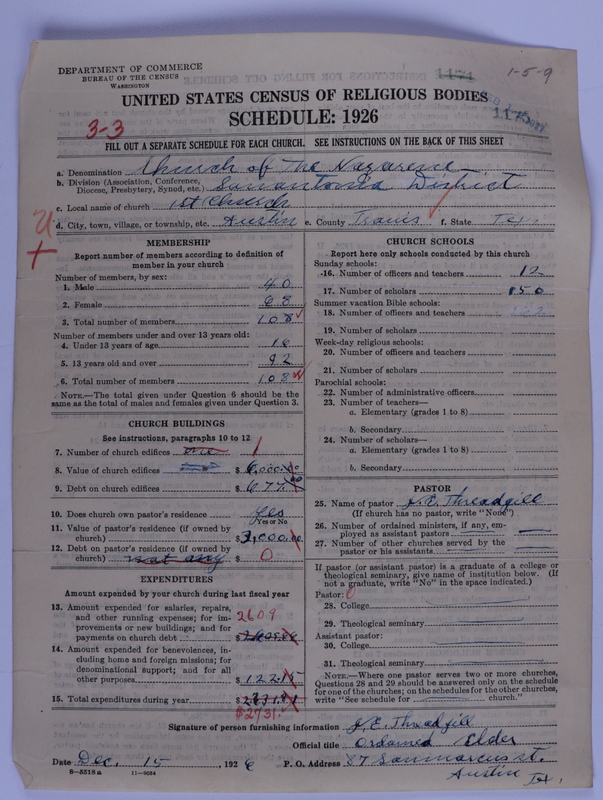 DEPARTMENT OF COMMERCE
BUREAU OF THE CENSUS
WASHINGTON
1174
1-5-9
UNITED STATES CENSUS OF RELIGIOUS BODIES
3-3
SCHEDULE: 1926
FILL OUT A SEPARATE SCHEDULE FOR EACH CHURCH. SEE INSTRUCTIONS ON THE BACK OF THIS SHEET
a. Denomination Church of The Nazarene
b. Division (Association, Conference, Diocese, Presbytery, Synod, etc.) Sanantonia District
c. Local name of church 1st Church
d. City, town, village, or township, etc. Austin e. County Travis f. State Tex
MEMBERSHIP
Report number of members according to definition of
member in your church
Number of members, by sex:
1. Male 40
2. Female 68
3. Total number of members 108
Number of members under and over 13 years old:
4. Under 13 years of age 16
5. 13 years old and over 92
6. Total number of members 108
NOTE.—The total given under Question 6 should be
same as the total of males and females given under Question 3.
CHURCH BUILDINGS
See instructions, paragraphs 10 to 12
7. Number of church edifices one 1
8. Value of church edifices $ 6,000.00
9. Debt on church edifices $ 677.00
10. Does church own pastor's residence? Yes
Yes or No
11. Value of pastor's residence (if owned by
church) $ 3,000.00
12. Debt on pastor's residence (if owned by
church) not any $ 0
EXPENDITURES
Amount expended by your church during last fiscal year
13. Amount expended for salaries, repairs,
and other running expenses; for im- 2609
provements or new buildings; and for
payments on church debt $
14. Amount expended for benevolences, in-
cluding home and foreign missions; for
denominational support; and for all
other purposes $ 122.15
15. Total expenditures during year $
$2731.
CHURCH SCHOOLS
Report here only schools conducted by this church
Sunday schools:
16. Number of officers and teachers 12
17. Number of scholars 150
Summer vacation Bible schools:
18. Number of officers and teachers
19. Number of scholars
Week-day religious schools:
20. Number of officers and teachers
21. Number of scholars
Parochial schools:
22. Number of administrative officers
23. Number of teachers—
a. Elementary (grades 1 to 8)
b. Secondary
24. Number of scholars—
a. Elementary (grades 1 to 8)
b. Secondary
PASTOR
25. Name of pastor J. E. Threadgill
(If church has no pastor, write "None")
26. Number of ordained ministers, if any, em-
ployed as assistant pastors
27. Number of other churches served by the
pastor or his assistants
If pastor (or assistant pastor) is a graduate of a college or
theological seminary, give name of institution below. (If
not a graduate, write "No" in the space indicated.)
Pastor: 0
28. College
29. Theological seminary
Assistant pastor:
30. College
31. Theological seminary
NOTE.—Where one pastor serves two or more churches,
Questions 28 and 29 should be answered only on the schedule
for one of the churches; on the schedules for the other churches,
write "See schedule for church."
Signature of person furnishing information J. E. Threadgill
Official title Ordained Elder
Date Dec. 15, 1926 P. O. Address 87 Sanmarcus st.
Austin Tex.
8-5518a 11-9034